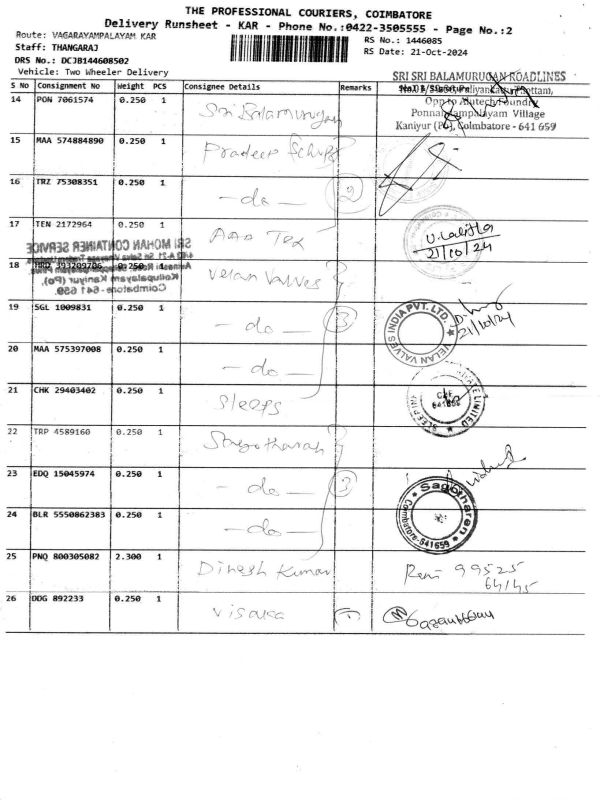 THE PROFESSIONAL COURIERS, COIMBATORE
Delivery Runsheet - KAR - Phone No.:0422-3505555 - Page No.:2
Route: VAGARAYAMPALAYAM KAR
RS No.: 1446085
Staff: THANGARAJ
RS Date: 21-Oct-2024
DRS No.: DCJB144608502
Vehicle: Two Wheeler Delivery
SRI SRI BALAMURUGAN ROADLINES
S No Consignment No Weight PCS Consignee Details Remarks
Opp to Alutech Foundry
Ponnandampalayam Village
Kaniyur (Po), Coimbatore - 641 659
14 PON 7061574 0.250 1 Sri Balamurugan
15 MAA 574884890 0.250 1 Pradeep
16 TRZ 75308351 0.250 1 - do - 2
17 TEN 2172964 0.250 1 Tex
U. Lalitha
21/10/24
SRI MOHAN CONTAINER SERVICE
Kaniyur (Po)
Coimbatore - 641 659.
18 0.250 1 Velan Valves
19 SGL 1009831 0.250 1 - do - 3
VELAN VALVES INDIA PVT. LTD.
21/10/24
20 MAA 575397008 0.250 1 - do -
21 CHK 29403402 0.250 1 Sleeps
CBE
641659
22 TRP 4589160 0.250 1 Sagotharan
23 EDQ 15045974 0.250 1 - do - 3
24 BLR 5550862383 0.250 1 - do -
Sagotharen
Coimbatore-641659
25 PNQ 800305082 2.300 1 Dinesh Kumar
99525
64145
26 DDG 892233 0.250 1 Visaka 1